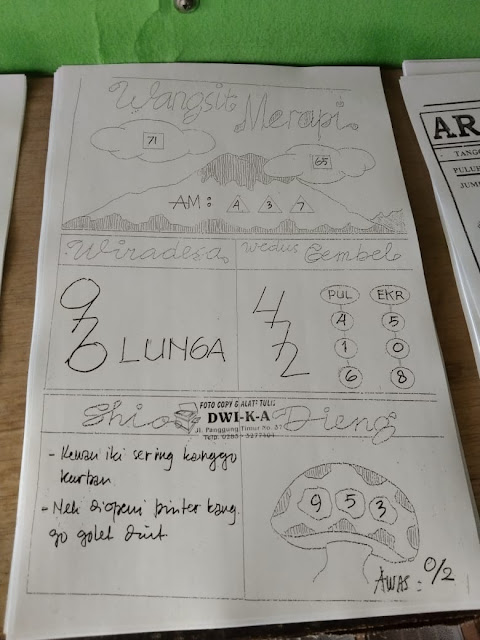 Wangsit Merapi
71
65
AM: 4 3 7
Wiradesa
Wedus Gembel
9
7
6 LUNGA
4
7
2
PUL EKR
4 5
1 0
6 8
Shio
Dieng
FOTO COPY & ALAT² TULIS
DWI-K-A
Jl. Panggung Timur No.
Telp. 0285
- Kewan iki sering kanggo
kurban
- Nek diopeni pinter kang
go golek duit
9 5 3
AWAS = 0/2
AR
TANGG
PULUH
JUM